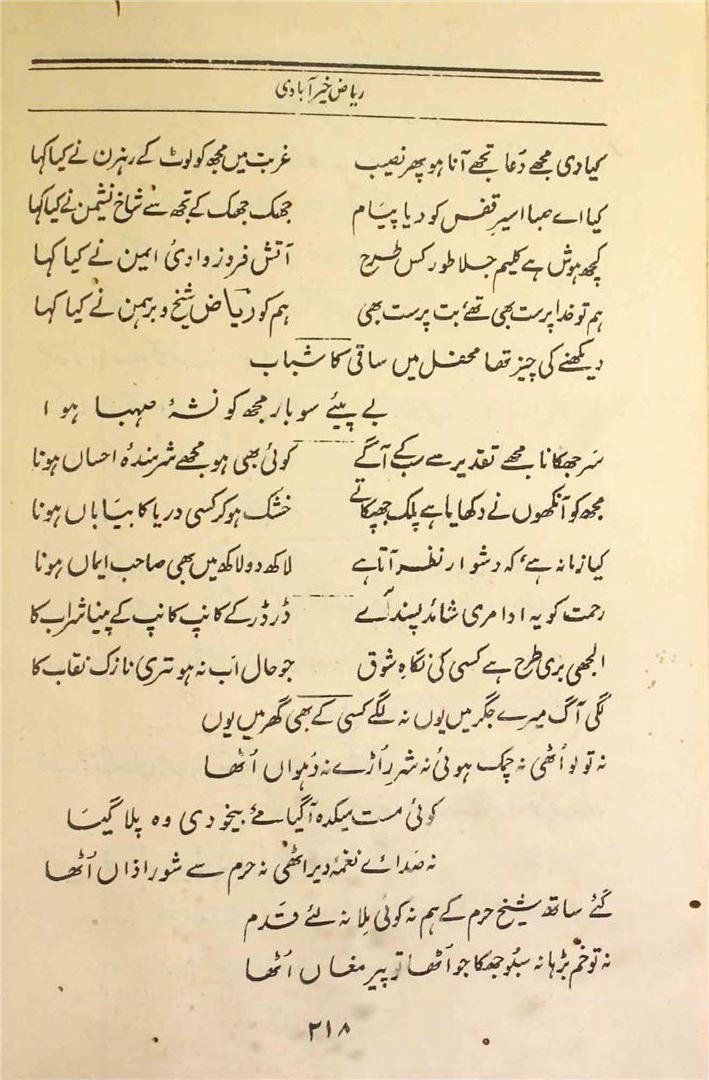 ریاض خیرآبادی
کیا دی مجھے دُعا تجھے آنا ہو پھر نصیب غربت میں مجھ کو لوٹ کے رہزن نے کیا کہا
کیا اے صبا اسیرِ قفس کو دیا پیام جھک جھک کے تجھ سے شاخِ نشیمن نے کیا کہا
کچھ ہوش ہے کلیم جلا طور کس طرح آتش فروز وادیٔ ایمن نے کیا کہا
ہم تو خدا پرست بھی تھے، بت پرست بھی ہم کو ریاض شیخ و برہمن نے کیا کہا
دیکھنے کی چیز تھا محفل میں ساقی کا شباب
بے پیئے سو بار مجھ کو نشۂ صہبا ہوا
سَر جھکانا مجھے تقدیر سے سب کے آگے کوئی بھی ہو مجھے شرمندۂ احساں ہونا
مجھ کو آنکھوں نے دکھایا ہے پلک جھپکاتے خشک ہو کر کسی دریا کا بیَاباں ہونا
کیا زمانہ ہے، کہ دشوار نظر آتا ہے لاکھ دو لاکھ میں بھی صاحب ایماں ہونا
رحمت کو یہ ادا مری شائد پسند آے ڈر ڈر کے کانپ کانپ کے پینا شراب کا
الجھی بری طرح ہے کسی کی نگاہِ شوق جو حال اَب نہ ہو تری نازک نقاب کا
لگی آگ میرے جگر میں یوں نہ لگے کسی کے بھی گھر میں یوں
نہ تو لو اُٹھی نہ چمک ہوئی نہ شرر اُڑے نہ دُہواں اُٹھا
کوئی مست میکدہ آگیا مۓ بیخودی وہ پلا گیَا
نہ صَداے نغمۂ دیر اٹھی نہ حرم سے شورِ اذاں اُٹھا
گئے ساتھ شیخ حرم کے ہم نہ کوئی مِلا نہ لئے قدم
نہ تو خم بڑہا نہ سبُو جھکا جو اُٹھا تو پیر مغاں اُٹھا
۲۱۸